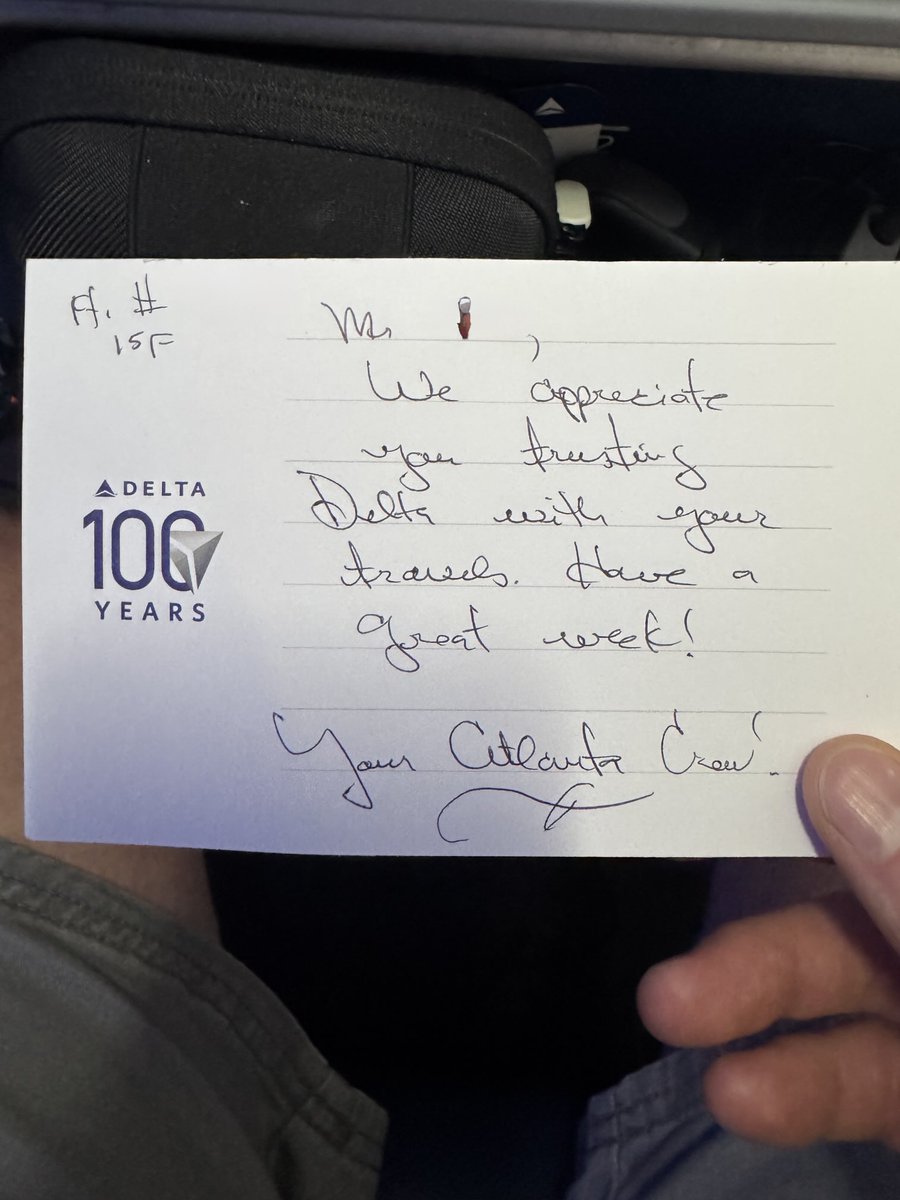 Fl. #
15F
Mr ,
We appreciate
you trusting
Delta with your
travels. Have a
great week!
Your Atlanta Crew.
DELTA
100
YEARS